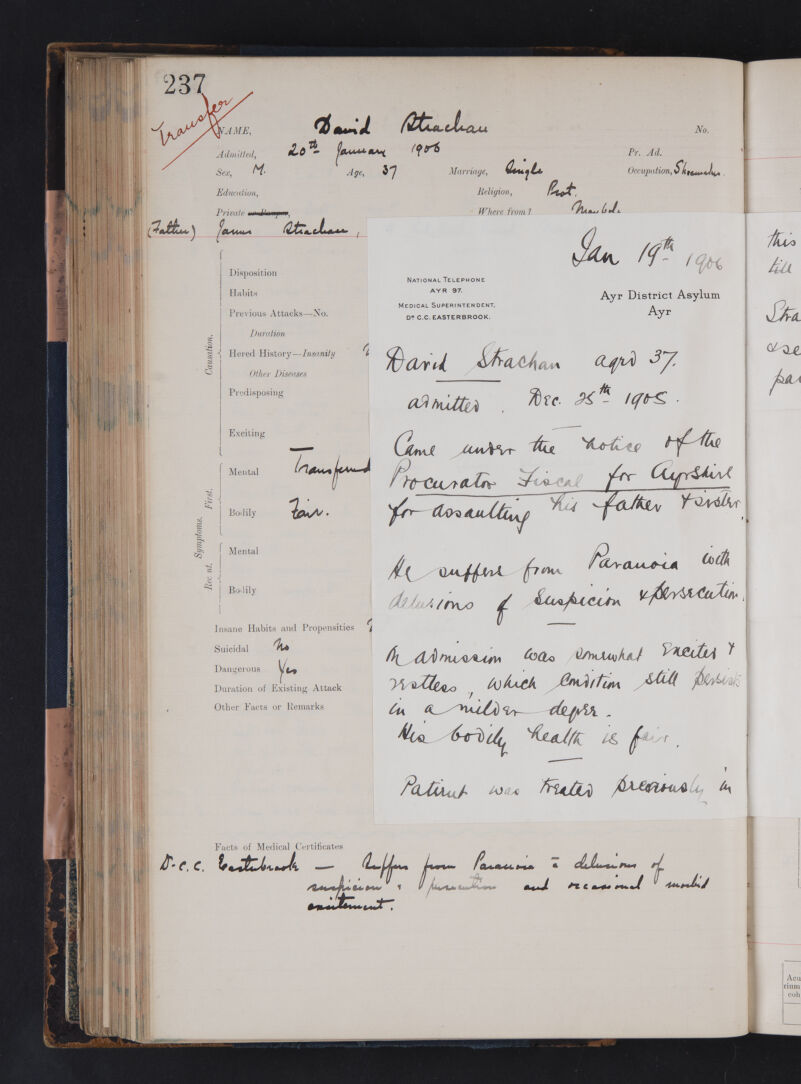 237
Transfer
NAME, David Strachan No.
Admitted, 20th January 1906 Pr. Ad.
Sex, M. Age, 37 Marriage, Single Occupation, Shoemaker.
Education, Religion, Prot.
Private Where from? Maybole
(Father) James Strachan,
Causation.
Disposition
Habits
Previous Attacks—No.
Duration
Hered History—Insanity
Other Diseases
Predisposing
Exciting
Symptoms.
First.
Mental Transferred
Bodily Fair.
Recent.
Mental
Bodily
Insane Habits and Propensities
Suicidal No
Dangerous Yes
Duration of Existing Attack
Other Facts or Remarks
Facts of Medical Certificates
Dr. C. C. Easterbrook — Suffers from Paranoia c̄ delusions of
suspicion & persecution and occasional morbid
excitement.
Jan 19th 1906
NATIONAL TELEPHONE
AYR 97.
MEDICAL SUPERINTENDENT,
DR C.C. EASTERBROOK.
Ayr District Asylum
Ayr
David Strachan aged 37.
admitted. Dec. 25th 1905.
Came under the notice of the
Procurator Fiscal for Ayrshire
for assaulting his father & sister.
He suffers from Paranoia with
delusions of suspicion & persecution.
On admission was somewhat excited &
restless, which condition still persists
in a milder degree.
His bodily health is fair.
Patient was treated previously in
this
till
Stra
pa
Acu
rium
coh